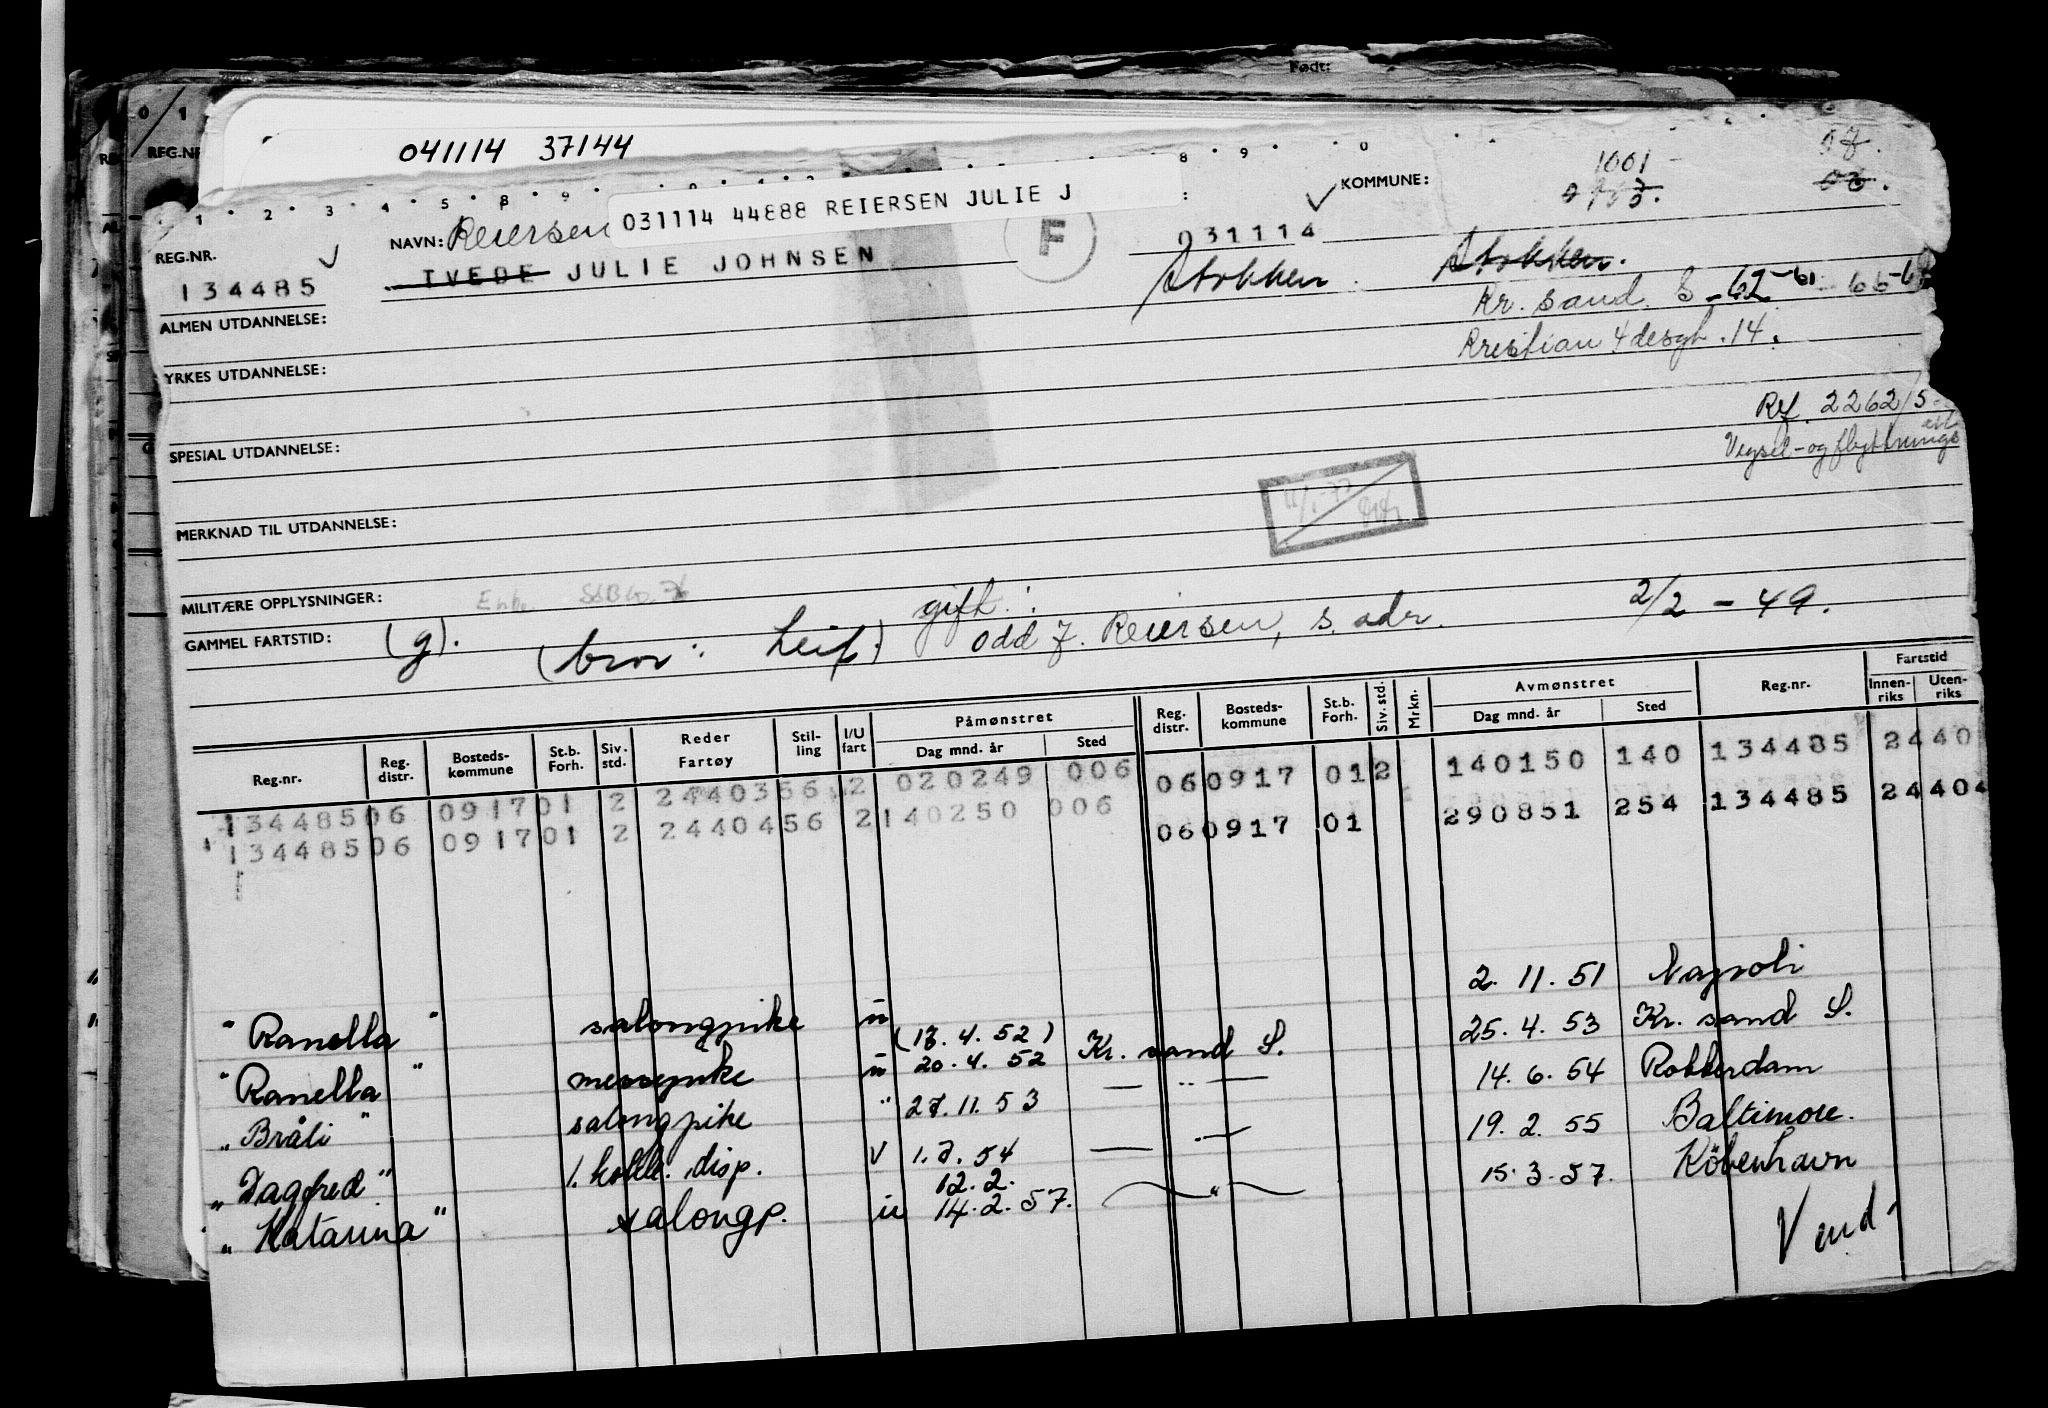 Født:
041114 37144
REG.NR.
1 2 3 4 5 8 9 8 9 0
1001
NAVN: Reiersen
031114 44888 REIERSEN JULIE J
KOMMUNE:
REG.NR.
134485
TVEDE JULIE JOHNSEN
F
031114
Stokken
Stokken.
Kr. sand S -62
Kristian 4 desgt. 14.
ALMEN UTDANNELSE:
YRKES UTDANNELSE:
Ref. 2262/5
Vigsel- og flyttnings
SPESIAL UTDANNELSE:
MERKNAD TIL UTDANNELSE:
MILITÆRE OPPLYSNINGER:
gift:
2/2 - 49.
GAMMEL FARTSTID: (g). (bror: Leif) Odd J. Reiersen, s. adr.
Reg.nr. Reg. distr. Bosteds-kommune St.b. Forh. Siv. std. Reder Fartøy Stil-ling I/U fart Påmønstret Dag mnd. år Sted Reg. distr. Bosteds-kommune St.b. Forh. Siv. std. Mrkn. Avmønstret Dag mnd. år Sted Reg.nr. Fartstid Innen-riks Uten-riks
134485 06 0917 01 2 2440356 2 020249 006 06 0917 01 2 140150 140 134485 2440
134485 06 0917 01 2 2440456 2 140250 006 06 0917 01 290851 254 134485 24404
"Ranella" salongpike u 2.11.51 Napoli
"Ranella" messepike u (17.4.52) 20.4.52 Kr. sand S. 25.4.53 Kr. sand S.
"Bråli" salongpike " 27.11.53 — " — 14.6.54 Rotterdam
"Dagfred" 1. kokk. disp. 1.7.54 — " — 19.2.55 Baltimore.
"Katarina" salongp. u 12.2. 14.2.57. — " — 15.3.57. København
Vend-